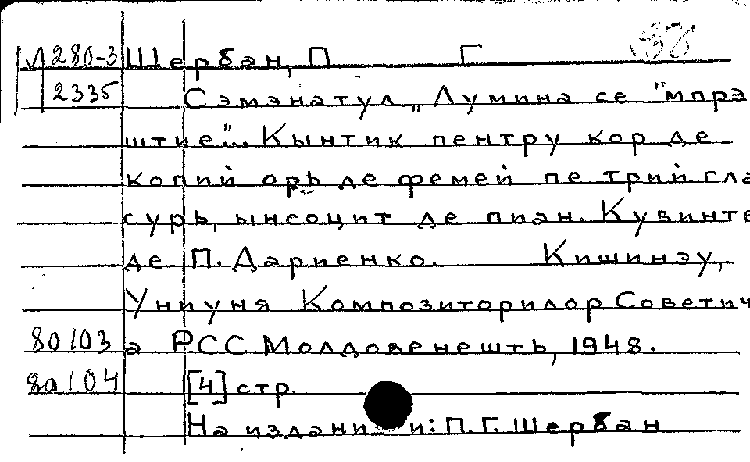 Л280-3 Шербан, П. Г.
2335 Сэмэнатул „Лумина се "мпрэ
штие".. Кынтик пентру кор де
копий орь де фемей пе трий гла
сурь, ынсоцит де пиан. Кувинте
де П. Дариенко. Кишинэу,
Униуня Композиторилор Советичь
80103 а РСС Молдовенешть, 1948.
80104 [4] стр.
На издании: П.Г. Шербан